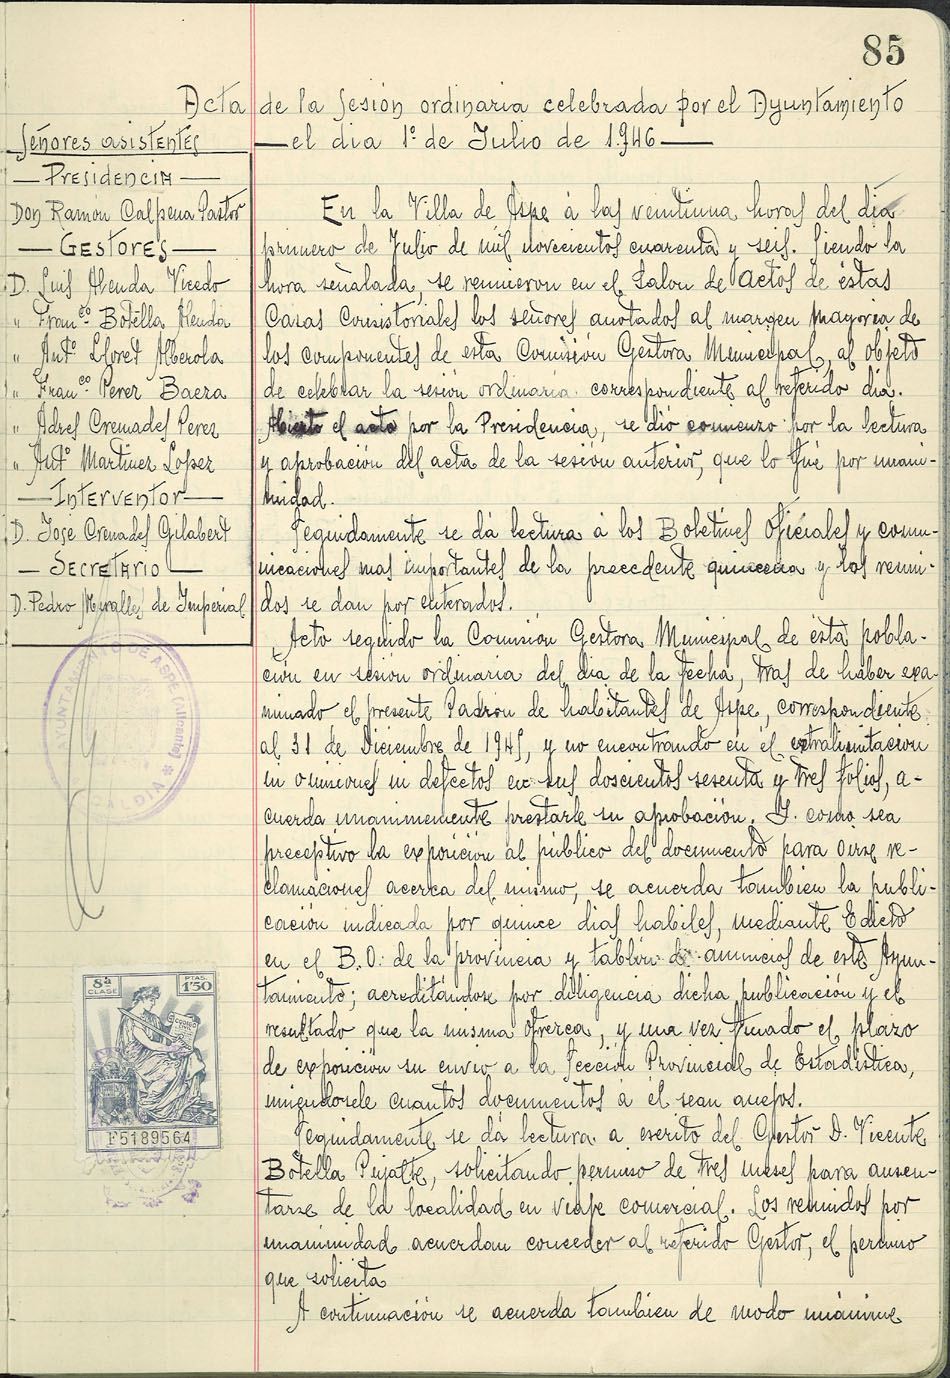 85
Acta de la Sesión ordinaria celebrada por el Ayuntamiento
—el dia 1º de Julio de 1.946—
Señores asistentes
—Presidencia—
Don Ramón Calpena Pastor
—Gestores—
D. Luis Almenda Vicedo
" Franco. Botella Almenda
" Anto. Lloret Alberola
" Franco. Perez Baeza
" Adres Cremades Perez
" Anto. Martinez Lopez
—Interventor—
D. Jose Cremades Gilabert
—Secretario—
D. Pedro Miralles de Imperial
En la Villa de Aspe á las veintiuna horas del dia
primero de Julio de mil novecientos cuarenta y seis. Siendo la
hora señalada, se reunieron en el Salon de Actos de éstas
Casas Consistoriales los señores anotados al margen mayoria de
los componentes de esta Comisión Gestora Municipal, al objeto
de celebrar la sesión ordinaria correspondiente al referido dia.
Abierto el acto por la Presidencia, se dió comienzo por la lectura
y aprobación del acta de la sesión anterior, que lo fué por unani-
midad.
Seguidamente se dá lectura á los Boletines Oficiales y comu-
nicaciones mas importantes de la precedente quincena y los reuni-
dos se dan por enterados.
Acto seguido la Comisión Gestora Municipal de ésta pobla-
ción en sesión ordinaria del dia de la fecha, tras de haber exa-
minado el presente Padron de habitantes de Aspe, correspondiente
al 31 de Diciembre de 1945, y no encontrando en él extralimitacion
ni omisiones ni defectos en sus doscientos sesenta y tres folios, a-
cuerda unanimemente prestarle su aprobación. Y como sea
preceptivo la exposición al público del documento para oirse re-
clamaciones acerca del mismo, se acuerda tambien la publi-
cación indicada por quince dias habiles, mediante Edicto
en el B.O. de la provincia y tablón de anuncios de este Ayun-
tamiento; acreditándose por diligencia dicha publicación y el
resultado que la misma ofrezca, y una vez finado el plazo
de exposición su envio a la Sección Provincial de Estadistica,
uniendosele cuantos documentos á él sean anejos.
Seguidamente se dá lectura a escrito del Gestor D. Vicente
Botella Pujalte, solicitando permiso de tres meses para ausen-
tarse de la localidad en viaje comercial. Los reunidos por
unanimidad acuerdan conceder al referido Gestor, el permiso
que solicita
A continuación se acuerda tambien de modo unánime
AYUNTAMIENTO DE ASPE (Alicante)
ALCALDIA
8ª CLASE
PTAS. 1'50
F5189564